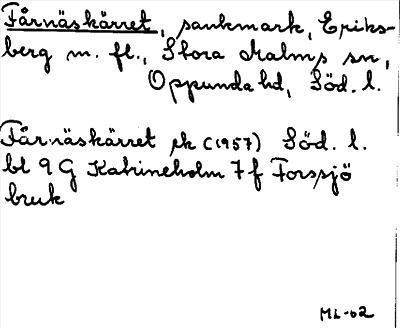 Fårnäskärret, sankmark, Eriks-
berg m. fl., Stora Malms sn,
Oppunda hd, Söd. l.
Fårnäskärret ek (1957) Söd. l.
bl 9 G Katrineholm 7 f Forssjö
bruk
ML-62